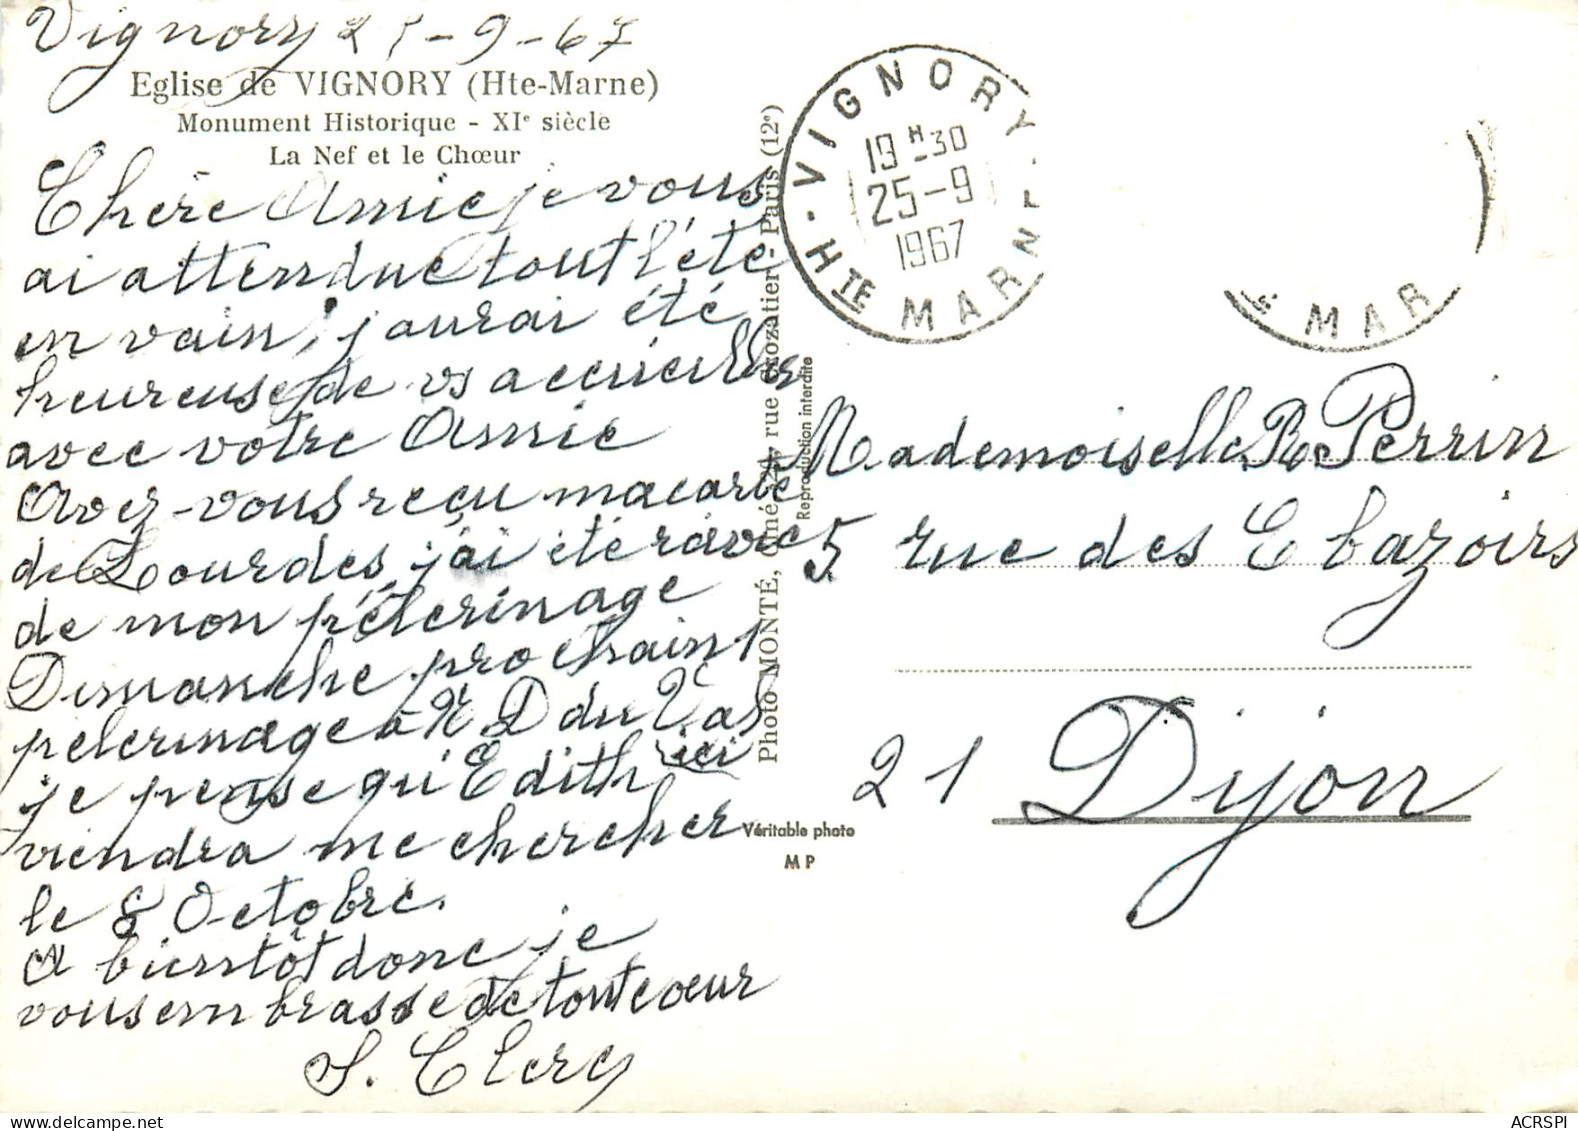 Vignory 25-9-67
Eglise de VIGNORY (Hte-Marne)
Monument Historique - XIe siècle
La Nef et le Chœur
Chère Amie je vous
ai attendue tout l'été
en vain, j'aurai été
heureuse de vs accueillir
avec votre Amie
Avez-vous reçu ma carte
de Lourdes, j'ai été ravie
de mon pélerinage
Dimanche prochain 1
pélerinage à N D du Val
je pense qu'Edith ici
viendra me chercher
le 8 Octobre.
A bientôt donc je
vous embrasse de tout cœur
S. Clerc
Photo MONTÉ, rue Crozatier - Paris (12e)
Reproduction interdite
Véritable photo
M P
VIGNORY
19 H 30
25-9
1967
HTE MARNE
MAR
Mademoiselle R. Perrin
5 rue des Ebazoirs
21 Dijon
ACRSPI